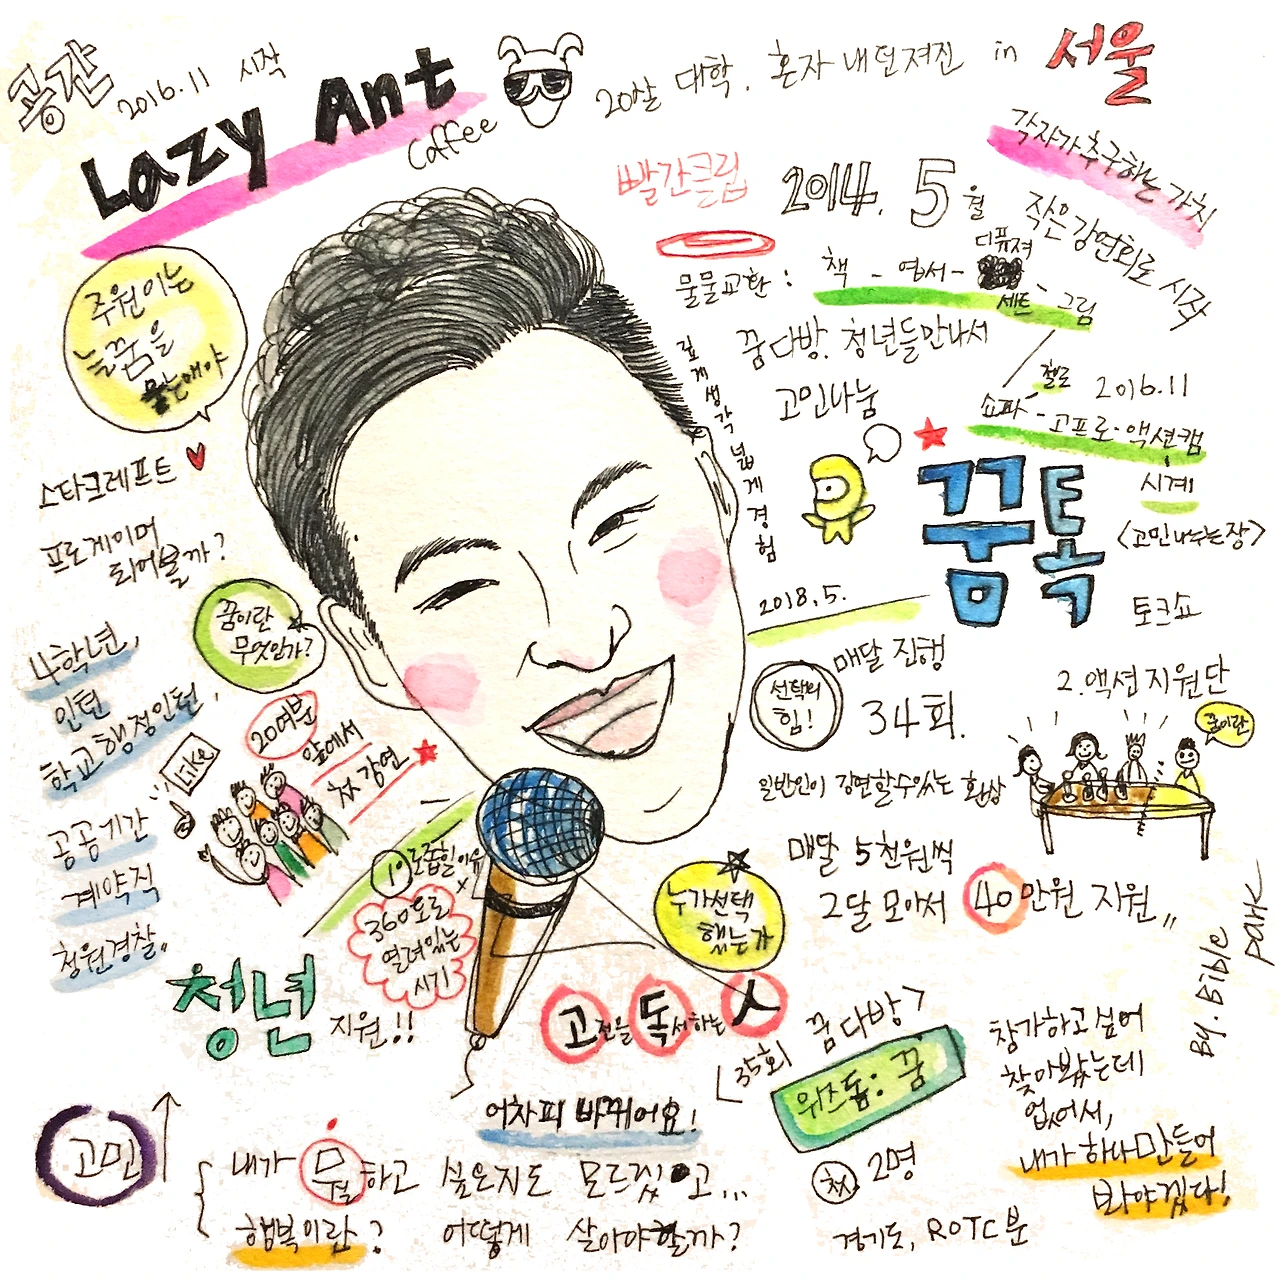 공간
2016.11 시작
Lazy Ant
Coffee
20살 대학, 혼자 내던져진 in 서울
각자가 추구하는 가치
빨간클립
2014. 5월
작은강연회로 시작
물물교환 : 책 - 엽서 - 디퓨져 세트 - 그림
꿈다방. 청년들만나서
고민나눔
쇼파 - 첼로 2016.11
고프로·액션캠
시계
깊게 생각 넓게 경험
주원이는
늘 꿈을
묻는애야
스타크레프트
프로게이머
되어볼까?
꿈톡
<고민나누는장>
토크쇼
꿈이란
무엇인가?
2018.5.
매달 진행
34회.
선택의
힘!
2.액션지원단
꿈이란
4학년,
인턴
학교행정인턴,
공공기간
계약직
청원경찰..
Like
20여분
앞에서
첫 강연
일반인이 강연할수있는 환상
매달 5천원씩
2달 모아서 40만원 지원,,
누가선택
했는가
360도로
열려있는
시기
청년 지원!!
고전을 독서하는 人
꿈다방>
35회
위즈돔: 꿈
참가하고싶어
찾아봤는데
없어서,
내가 하나만들어
봐야겠다!
By. Bible Park
어차피 바뀌어요!
첫 2명
경기도, ROTC분
고민
내가 무얼하고 싶은지도 모르겠고...
행복이란? 어떻게 살아야할까?